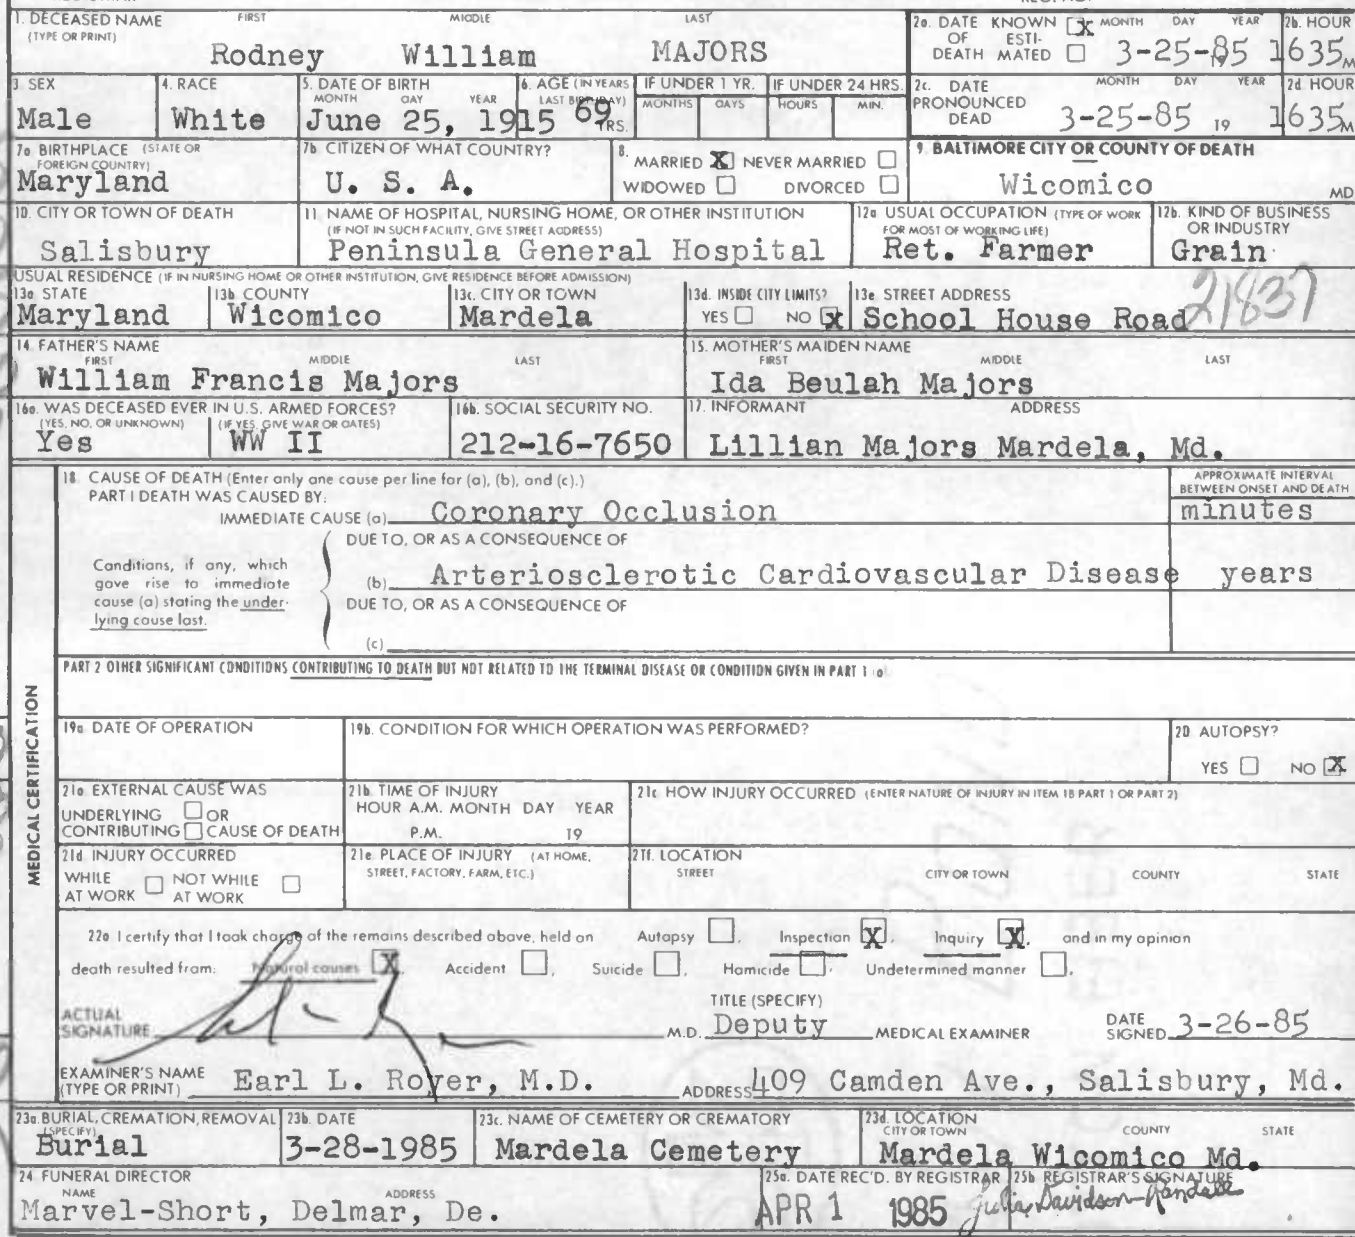 1. DECEASED NAME FIRST MIDDLE LAST
(TYPE OR PRINT)
Rodney William MAJORS
2a. DATE KNOWN [X] MONTH DAY YEAR
OF ESTI-
DEATH MATED ☐ 3-25-85
2b. HOUR
1635 M
3. SEX
Male
4. RACE
White
5. DATE OF BIRTH
MONTH DAY YEAR
June 25, 1915
6. AGE (IN YEARS
LAST BIRTHDAY)
69 YRS.
IF UNDER 1 YR.
MONTHS DAYS
IF UNDER 24 HRS.
HOURS MIN.
2c. DATE MONTH DAY YEAR
PRONOUNCED
DEAD 3-25-85 19
2d HOUR
1635 M
7a BIRTHPLACE (STATE OR
FOREIGN COUNTRY)
Maryland
7b. CITIZEN OF WHAT COUNTRY?
U. S. A.
8.
MARRIED [X] NEVER MARRIED ☐
WIDOWED ☐ DIVORCED ☐
9. BALTIMORE CITY OR COUNTY OF DEATH
Wicomico MD
10. CITY OR TOWN OF DEATH
Salisbury
11. NAME OF HOSPITAL, NURSING HOME, OR OTHER INSTITUTION
(IF NOT IN SUCH FACILITY, GIVE STREET ADDRESS)
Peninsula General Hospital
12a USUAL OCCUPATION (TYPE OF WORK
FOR MOST OF WORKING LIFE)
Ret. Farmer
12b. KIND OF BUSINESS
OR INDUSTRY
Grain
USUAL RESIDENCE (IF IN NURSING HOME OR OTHER INSTITUTION, GIVE RESIDENCE BEFORE ADMISSION)
13a STATE
Maryland
13b COUNTY
Wicomico
13c. CITY OR TOWN
Mardela
13d. INSIDE CITY LIMITS?
YES ☐ NO [X]
13e STREET ADDRESS
School House Road 21837
14. FATHER'S NAME
FIRST MIDDLE LAST
William Francis Majors
15. MOTHER'S MAIDEN NAME
FIRST MIDDLE LAST
Ida Beulah Majors
16a. WAS DECEASED EVER IN U.S. ARMED FORCES?
(YES, NO, OR UNKNOWN) (IF YES, GIVE WAR OR DATES)
Yes WW II
16b. SOCIAL SECURITY NO.
212-16-7650
17. INFORMANT ADDRESS
Lillian Majors Mardela, Md.
MEDICAL CERTIFICATION
18. CAUSE OF DEATH (Enter only one cause per line for (a), (b), and (c).)
PART I DEATH WAS CAUSED BY:
APPROXIMATE INTERVAL
BETWEEN ONSET AND DEATH
IMMEDIATE CAUSE (a) Coronary Occlusion minutes
DUE TO, OR AS A CONSEQUENCE OF
Conditions, if any, which
gave rise to immediate
cause (a) stating the under-
lying cause last.
(b) Arteriosclerotic Cardiovascular Disease years
DUE TO, OR AS A CONSEQUENCE OF
(c)
PART 2 OTHER SIGNIFICANT CONDITIONS CONTRIBUTING TO DEATH BUT NOT RELATED TO THE TERMINAL DISEASE OR CONDITION GIVEN IN PART 1 (a)
19a DATE OF OPERATION
19b. CONDITION FOR WHICH OPERATION WAS PERFORMED?
20. AUTOPSY?
YES ☐ NO [X]
21a EXTERNAL CAUSE WAS
UNDERLYING ☐ OR
CONTRIBUTING ☐ CAUSE OF DEATH
21b. TIME OF INJURY
HOUR A.M. MONTH DAY YEAR
P.M. 19
21c HOW INJURY OCCURRED (ENTER NATURE OF INJURY IN ITEM 18 PART 1 OR PART 2)
21d INJURY OCCURRED
WHILE ☐ NOT WHILE ☐
AT WORK AT WORK
21e PLACE OF INJURY (AT HOME,
STREET, FACTORY, FARM, ETC.)
21f. LOCATION
STREET CITY OR TOWN COUNTY STATE
22a I certify that I took charge of the remains described above, held an Autopsy ☐, Inspection [X], Inquiry [X], and in my opinion
death resulted from: Natural causes [X], Accident ☐, Suicide ☐, Homicide ☐, Undetermined manner ☐,
ACTUAL
SIGNATURE M.D.
TITLE (SPECIFY)
Deputy MEDICAL EXAMINER
DATE
SIGNED 3-26-85
EXAMINER'S NAME
(TYPE OR PRINT) Earl L. Royer, M.D. ADDRESS 409 Camden Ave., Salisbury, Md.
23a. BURIAL, CREMATION, REMOVAL
(SPECIFY)
Burial
23b. DATE
3-28-1985
23c. NAME OF CEMETERY OR CREMATORY
Mardela Cemetery
23d. LOCATION
CITY OR TOWN COUNTY STATE
Mardela Wicomico Md.
24. FUNERAL DIRECTOR
NAME ADDRESS
Marvel-Short, Delmar, De.
25a. DATE REC'D. BY REGISTRAR
APR 1 1985
25b REGISTRAR'S SIGNATURE
Julia Davidson-Randall